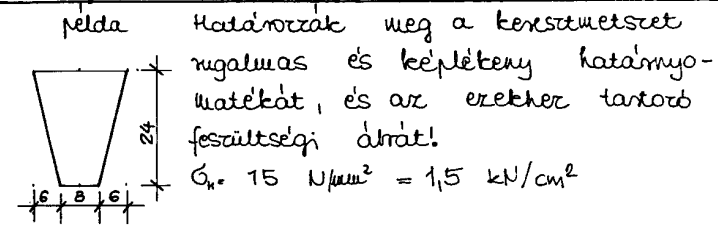 példa
Határozzák meg a keresztmetszet
rugalmas és képlékeny határnyo-
matékát, és az ezekhez tartozó
feszültségi ábrát!
σ_H= 15 N/mm² = 1,5 kN/cm²
24
6 8 6